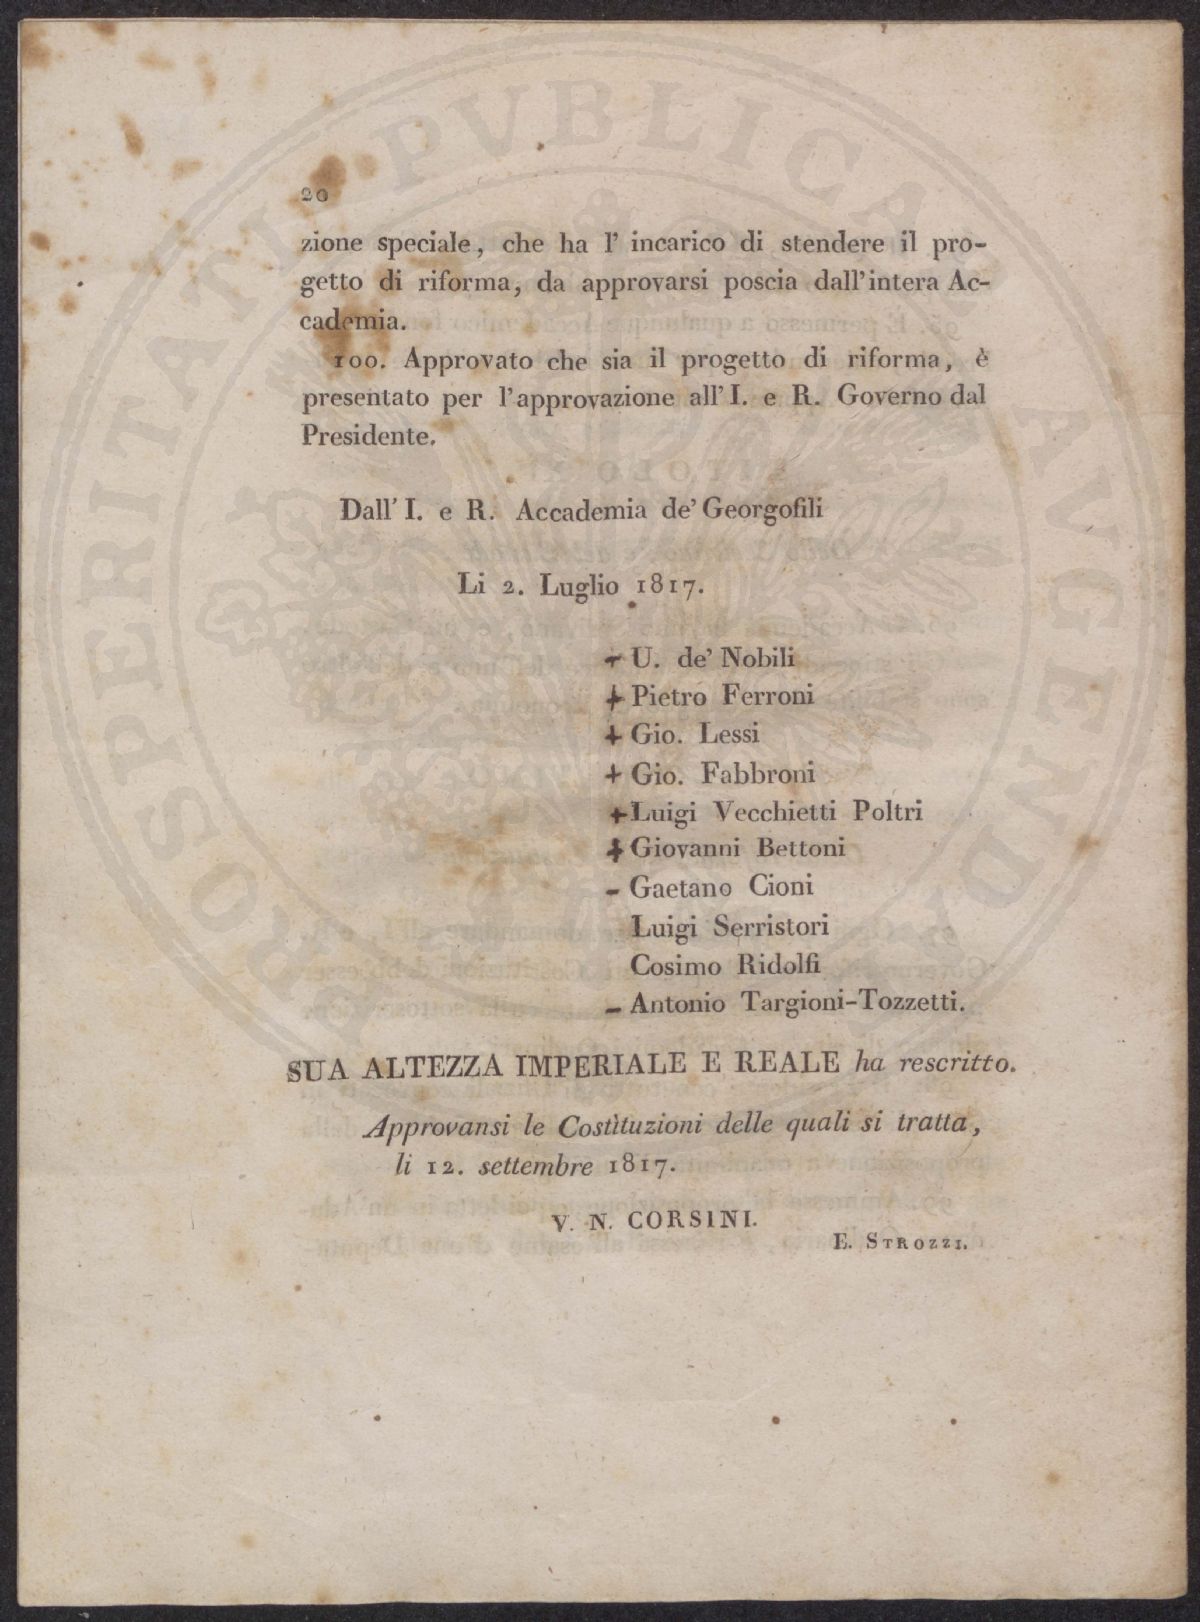 20
zione speciale, che ha l' incarico di stendere il pro-
getto di riforma, da approvarsi poscia dall'intera Ac-
cademia.
100. Approvato che sia il progetto di riforma, è
presentato per l'approvazione all' I. e R. Governo dal
Presidente.
Dall' I. e R. Accademia de' Georgofili
Li 2. Luglio 1817.
- U. de' Nobili
+ Pietro Ferroni
+ Gio. Lessi
+ Gio. Fabbroni
+ Luigi Vecchietti Poltri
+ Giovanni Bettoni
- Gaetano Cioni
Luigi Serristori
Cosimo Ridolfi
- Antonio Targioni-Tozzetti.
SUA ALTEZZA IMPERIALE E REALE ha rescritto.
Approvansi le Costituzioni delle quali si tratta,
li 12. settembre 1817.
V. N. CORSINI.
E. STROZZI.
PROSPERITATI PUBLICAE AUGENDAE